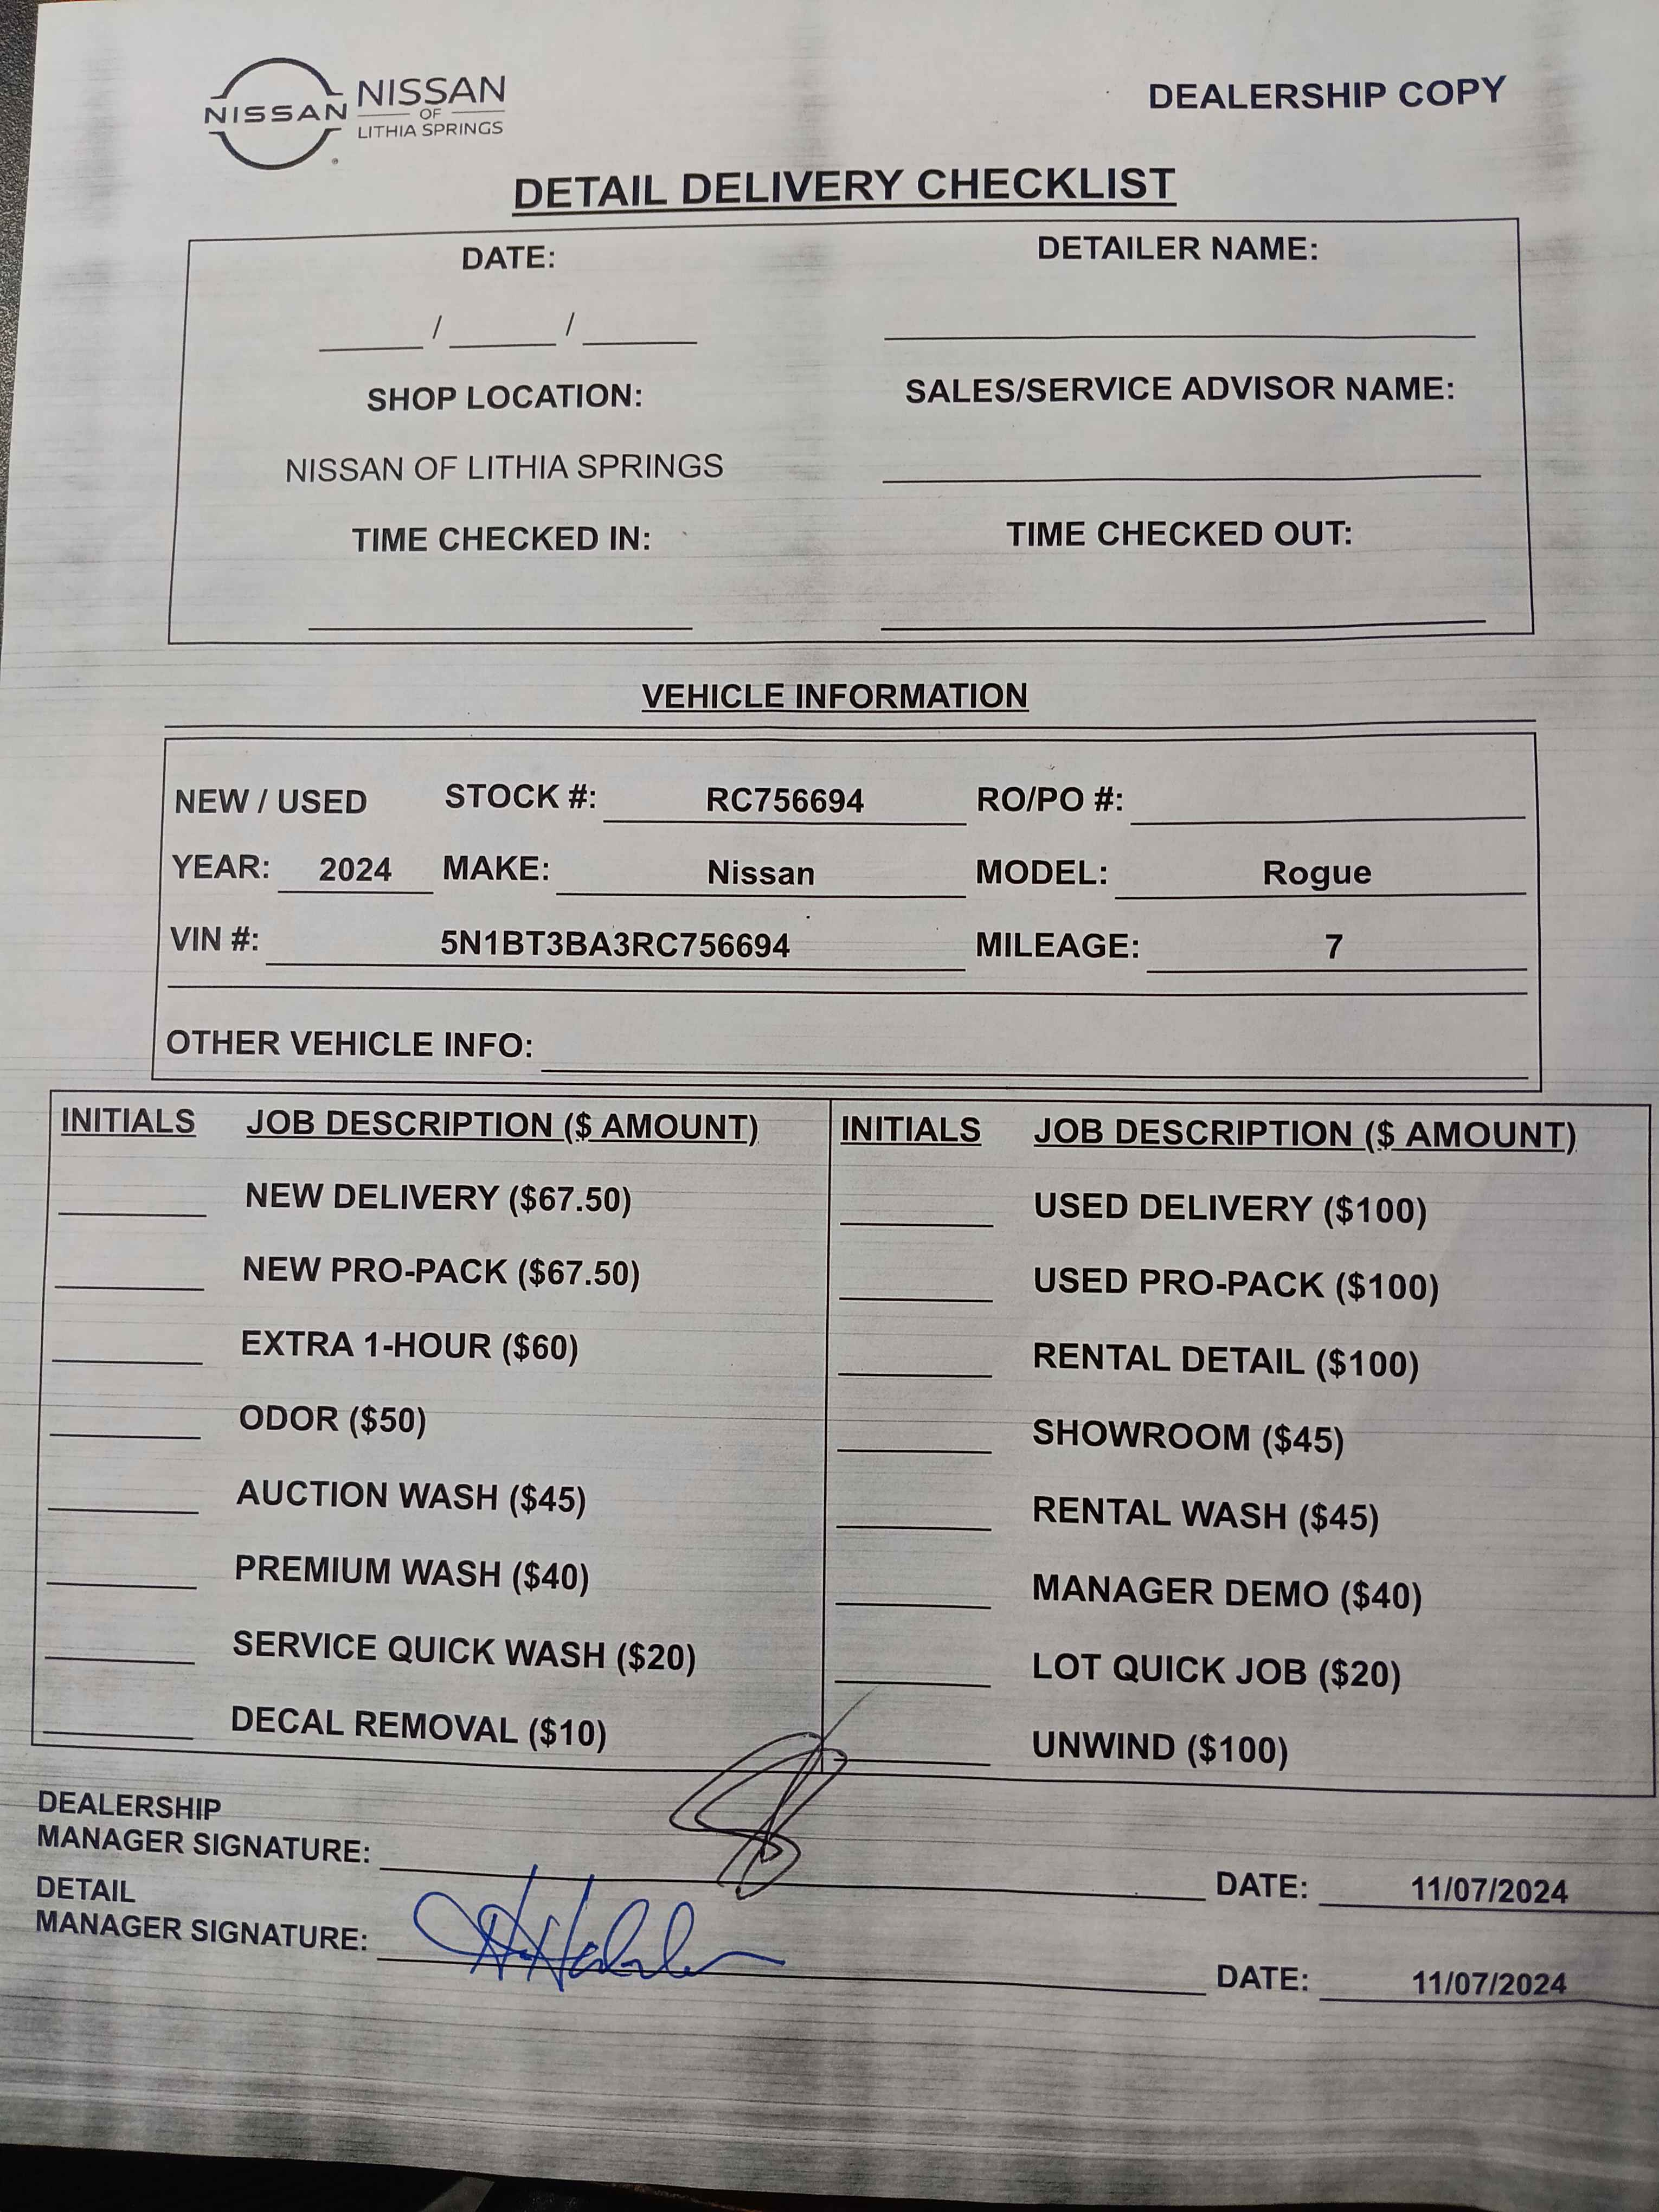 NISSAN NISSAN
OF
LITHIA SPRINGS
DEALERSHIP COPY
DETAIL DELIVERY CHECKLIST
DATE: DETAILER NAME:
____ / ____ / ____ ____
SHOP LOCATION: SALES/SERVICE ADVISOR NAME:
NISSAN OF LITHIA SPRINGS ____
TIME CHECKED IN: TIME CHECKED OUT:
VEHICLE INFORMATION
NEW / USED STOCK #: RC756694 RO/PO #:
YEAR: 2024 MAKE: Nissan MODEL: Rogue
VIN #: 5N1BT3BA3RC756694 MILEAGE: 7
OTHER VEHICLE INFO:
INITIALS JOB DESCRIPTION ($ AMOUNT) INITIALS JOB DESCRIPTION ($ AMOUNT)
NEW DELIVERY ($67.50) USED DELIVERY ($100)
NEW PRO-PACK ($67.50) USED PRO-PACK ($100)
EXTRA 1-HOUR ($60) RENTAL DETAIL ($100)
ODOR ($50) SHOWROOM ($45)
AUCTION WASH ($45) RENTAL WASH ($45)
PREMIUM WASH ($40) MANAGER DEMO ($40)
SERVICE QUICK WASH ($20) LOT QUICK JOB ($20)
DECAL REMOVAL ($10) UNWIND ($100)
DEALERSHIP
MANAGER SIGNATURE: DATE: 11/07/2024
DETAIL
MANAGER SIGNATURE: DATE: 11/07/2024